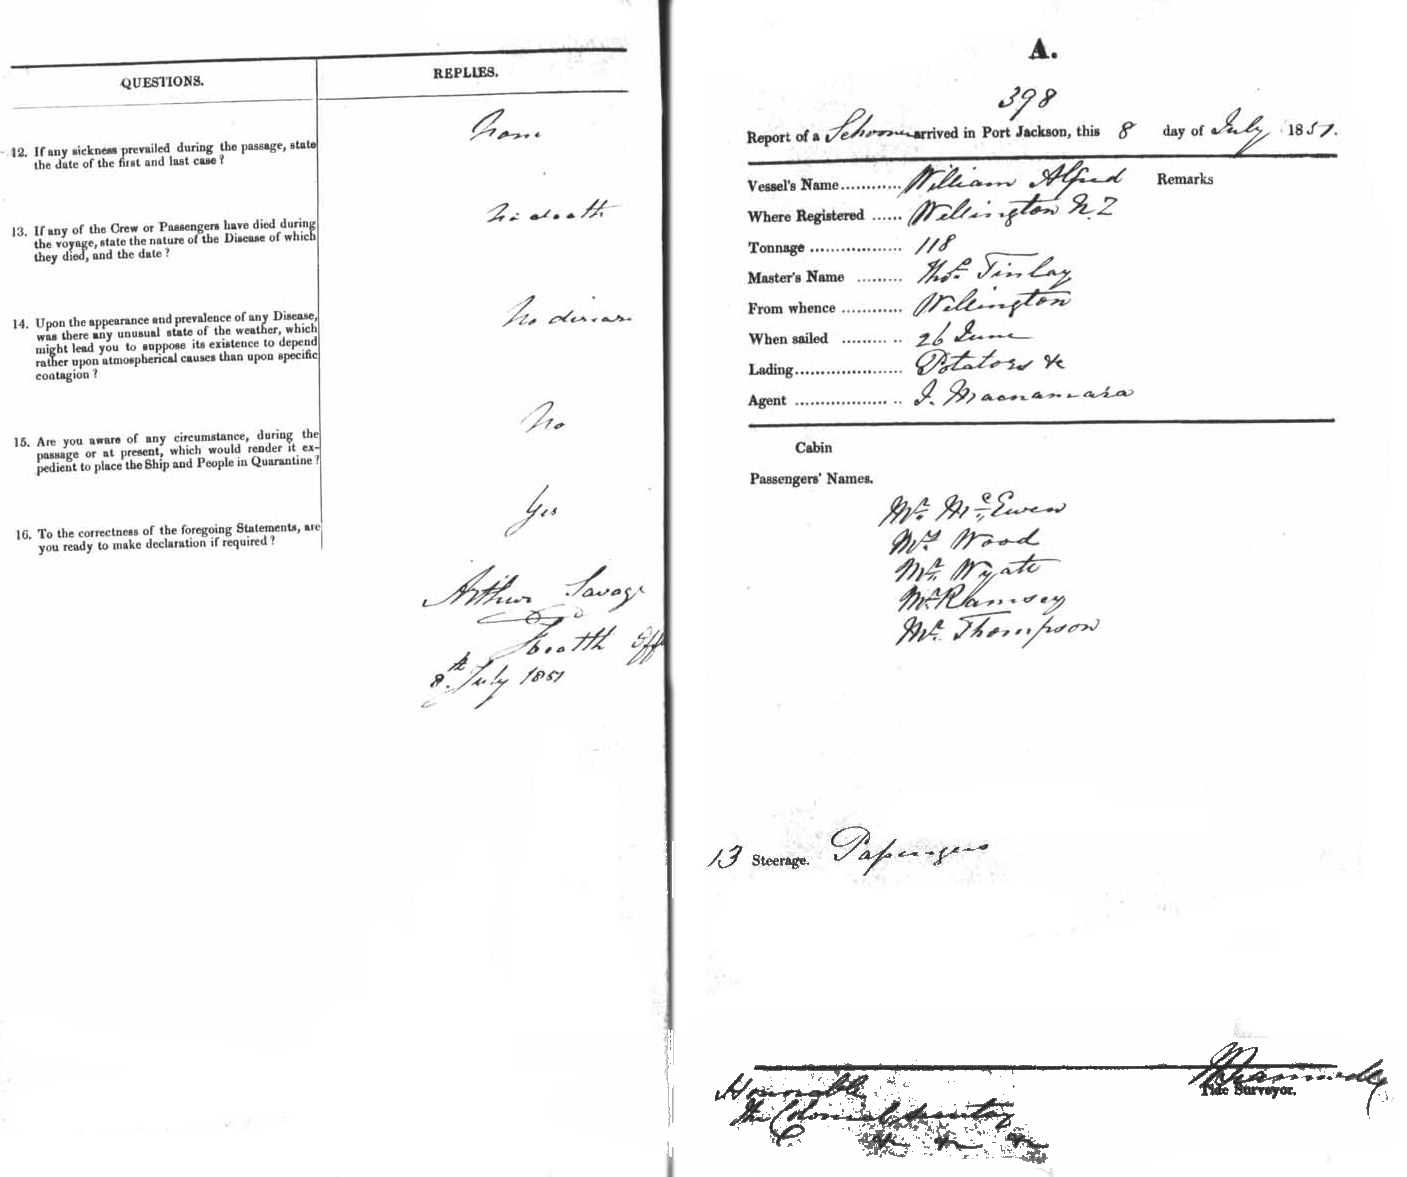 QUESTIONS.
REPLIES.
12. If any sickness prevailed during the passage, state
the date of the first and last case ?
None
13. If any of the Crew or Passengers have died during
the voyage, state the nature of the Disease of which
they died, and the date ?
No death
14. Upon the appearance and prevalence of any Disease,
was there any unusual state of the weather, which
might lead you to suppose its existence to depend
rather upon atmospherical causes than upon specific
contagion ?
No disease
15. Are you aware of any circumstance, during the
passage or at present, which would render it ex-
pedient to place the Ship and People in Quarantine ?
No
16. To the correctness of the foregoing Statements, are
you ready to make declaration if required ?
Yes
Arthur Savage
Health Off
8th July 1851
A.
398
Report of a Schooner arrived in Port Jackson, this 8 day of July 1851.
Vessel's Name............ William Alfred Remarks
Where Registered ...... Wellington N.Z
Tonnage .................. 118
Master's Name ......... Thos. Tinlay
From whence ............ Wellington
When sailed ......... .. 26 June
Lading...................... Potatoes &c
Agent .................. .. J. Macnamara
Cabin
Passengers' Names.
Mr. McEwen
Mr. Wood
Mr. Wyatt
Mr. Ramsey
Mr. Thompson
13 Steerage. Passengers
Tide Surveyor.
Honorable
The Colonial Secretary
&c &c &c